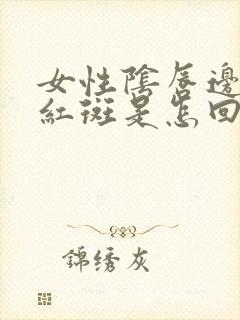 女性陰唇邊
紅斑是怎回
錦绣灰